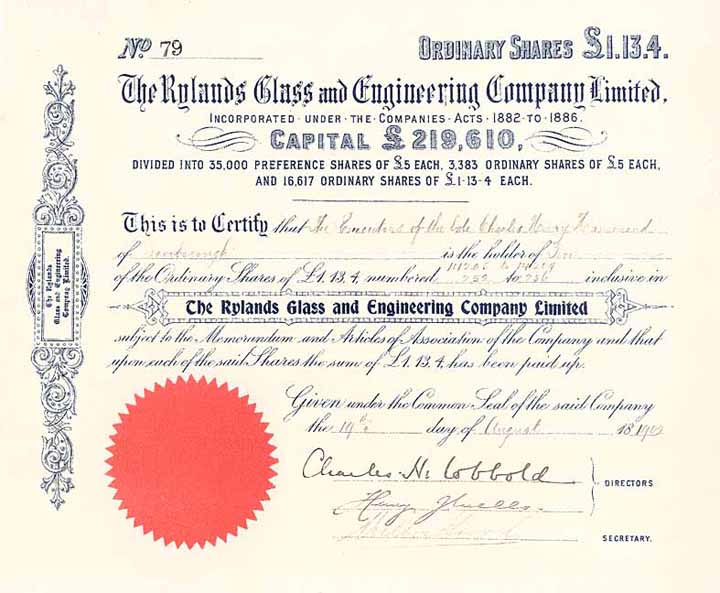 No 79
ORDINARY SHARES £1.13.4.
The Rylands Glass and Engineering Company Limited.
INCORPORATED · UNDER · THE · COMPANIES · ACTS · 1882 · TO · 1886.
CAPITAL £219,610,
DIVIDED INTO 35,000 PREFERENCE SHARES OF £5 EACH, 3,383 ORDINARY SHARES OF £5 EACH,
AND 16,617 ORDINARY SHARES OF £1-13-4 EACH.
The Rylands
Glass and Engineering
Company Limited.
This is to Certify that The Executors of the late Charles Henry
of is the holder of
of the Ordinary Shares of £1.13.4, numbered to inclusive in
The Rylands Glass and Engineering Company Limited
subject to the Memorandum and Articles of Association of the Company and that
upon each of the said Shares the sum of £1.13.4, has been paid up.
Given under the Common Seal of the said Company
the 19th day of August
Charles H. Cobbold
DIRECTORS
Henry
SECRETARY.